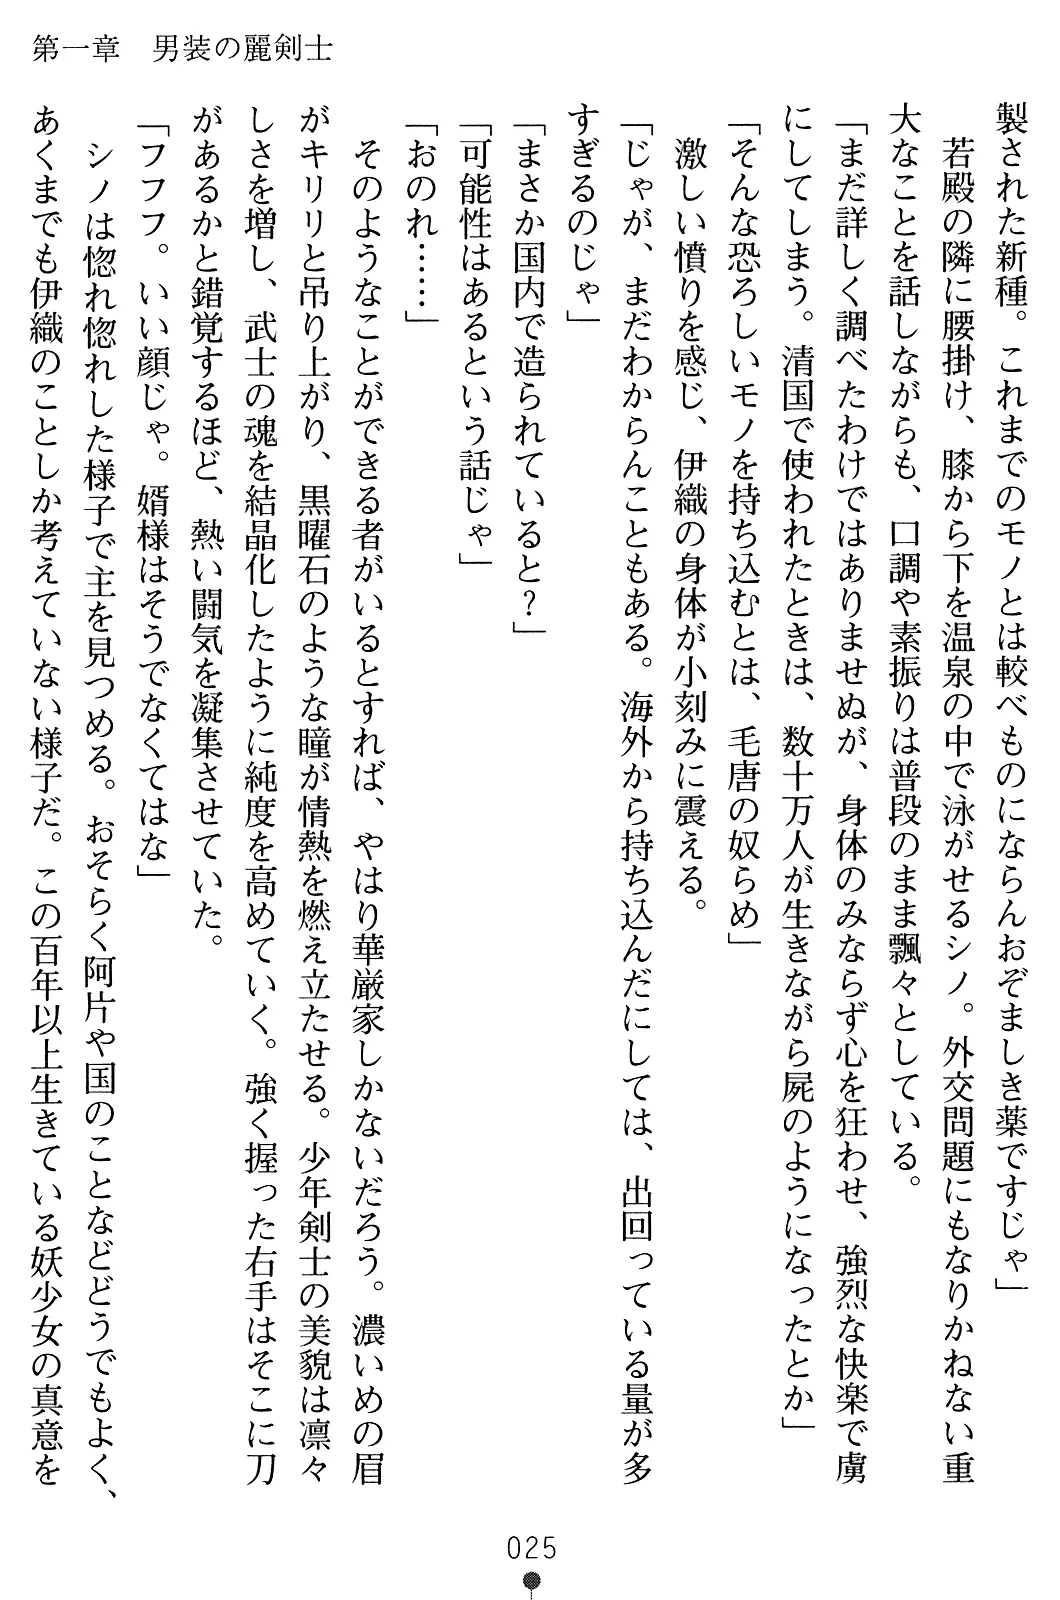 第一章　男装の麗剣士
製された新種。これまでのモノとは較べものにならんおぞましき薬ですじゃ」
　若殿の隣に腰掛け、膝から下を温泉の中で泳がせるシノ。外交問題にもなりかねない重
大なことを話しながらも、口調や素振りは普段のまま飄々としている。
「まだ詳しく調べたわけではありませぬが、身体のみならず心を狂わせ、強烈な快楽で虜
にしてしまう。清国で使われたときは、数十万人が生きながら屍のようになったとか」
「そんな恐ろしいモノを持ち込むとは、毛唐の奴らめ」
　激しい憤りを感じ、伊織の身体が小刻みに震える。
「じゃが、まだわからんこともある。海外から持ち込んだにしては、出回っている量が多
すぎるのじゃ」
「まさか国内で造られていると？」
「可能性はあるという話じゃ」
「おのれ……」
　そのようなことができる者がいるとすれば、やはり華厳家しかないだろう。濃いめの眉
がキリリと吊り上がり、黒曜石のような瞳が情熱を燃え立たせる。少年剣士の美貌は凛々
しさを増し、武士の魂を結晶化したように純度を高めていく。強く握った右手はそこに刀
があるかと錯覚するほど、熱い闘気を凝集させていた。
「フフフ。いい顔じゃ。婿様はそうでなくてはな」
　シノは惚れ惚れした様子で主を見つめる。おそらく阿片や国のことなどどうでもよく、
あくまでも伊織のことしか考えていない様子だ。この百年以上生きている妖少女の真意を
025